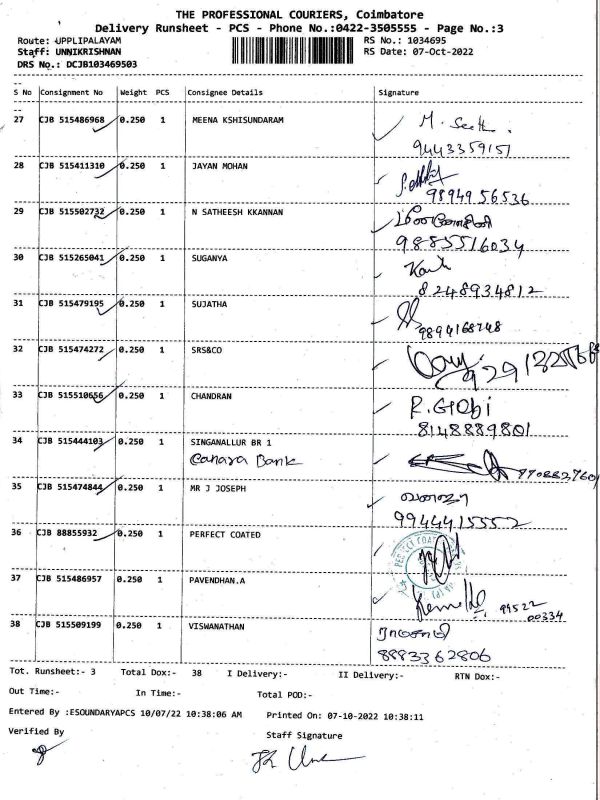 THE PROFESSIONAL COURIERS, Coimbatore
Delivery Runsheet - PCS - Phone No.:0422-3505555 - Page No.:3
Route: UPPLIPALAYAM RS No.: 1034695
Staff: UNNIKRISHNAN RS Date: 07-Oct-2022
DRS No.: DCJB103469503
S No Consignment No Weight PCS Consignee Details Signature
27 CJB 515486968 0.250 1 MEENA KSHISUNDARAM
9443359157
28 CJB 515411310 0.250 1 JAYAN MOHAN
98949 56536
29 CJB 515502732 0.250 1 N SATHEESH KKANNAN
9885516034
30 CJB 515265041 0.250 1 SUGANYA
8248934812
31 CJB 515479195 0.250 1 SUJATHA
9894168748
32 CJB 515474272 0.250 1 SRS&CO
33 CJB 515510656 0.250 1 CHANDRAN R.GIObi
8148889801
34 CJB 515444103 0.250 1 SINGANALLUR BR 1
Canara Bank
35 CJB 515474844 0.250 1 MR J JOSEPH
9944415552
36 CJB 88855932 0.250 1 PERFECT COATED
37 CJB 515486957 0.250 1 PAVENDHAN.A
99522
00334
38 CJB 515509199 0.250 1 VISWANATHAN
8883362806
Tot. Runsheet:- 3 Total Dox:- 38 I Delivery:- II Delivery:- RTN Dox:-
Out Time:- In Time:- Total POD:-
Entered By :ESOUNDARYAPCS 10/07/22 10:38:06 AM Printed On: 07-10-2022 10:38:11
Verified By Staff Signature